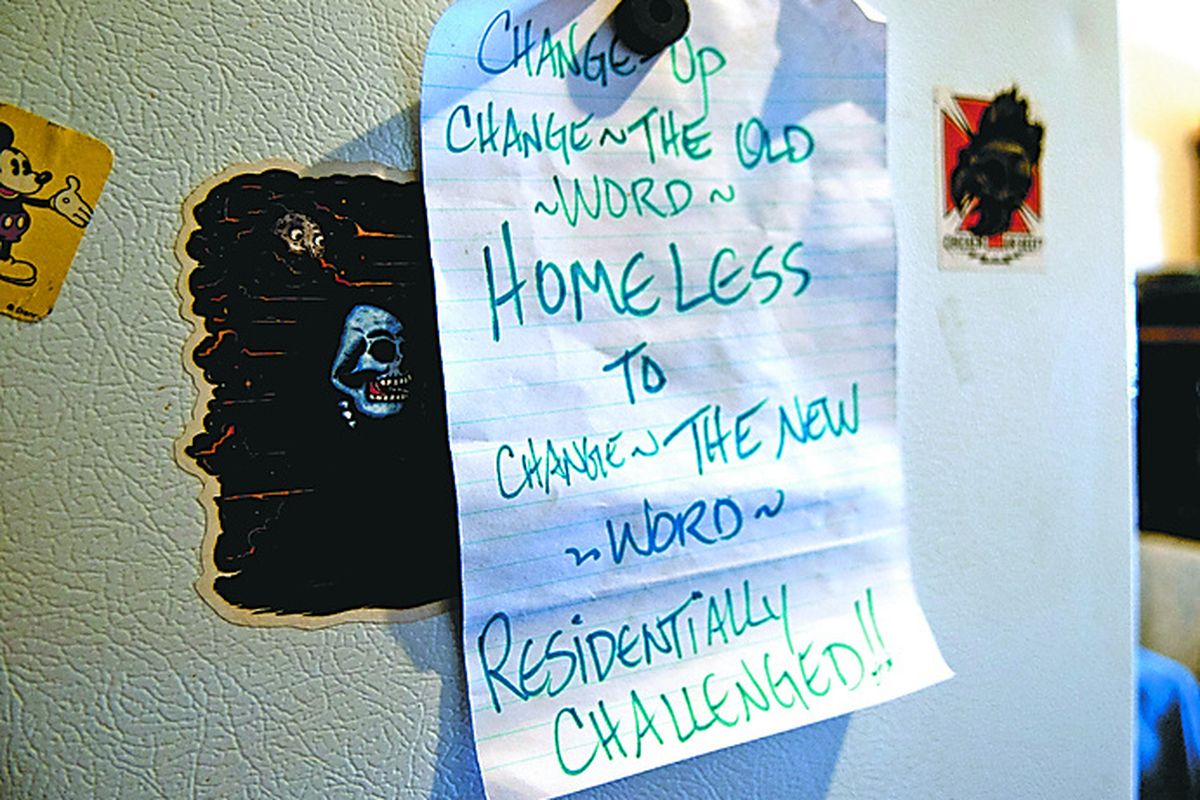 CHANGE UP
CHANGE~THE OLD
~WORD~
HOMELESS
TO
CHANGE~THE NEW
~WORD~
RESIDENTIALLY
CHALLENGED!!